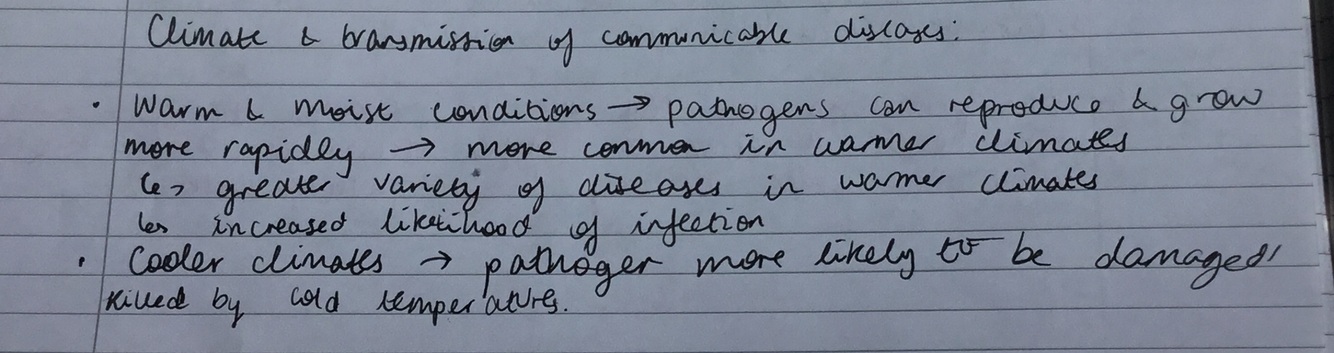 Climate & transmission of communicable diseases:
• Warm & moist conditions → pathogens can reproduce & grow
more rapidly → more common in warmer climates
↳ greater variety of diseases in warmer climates
↳ increased likelihood of infection
• Cooler climates → pathogen more likely to be damaged/
killed by cold temperatures.